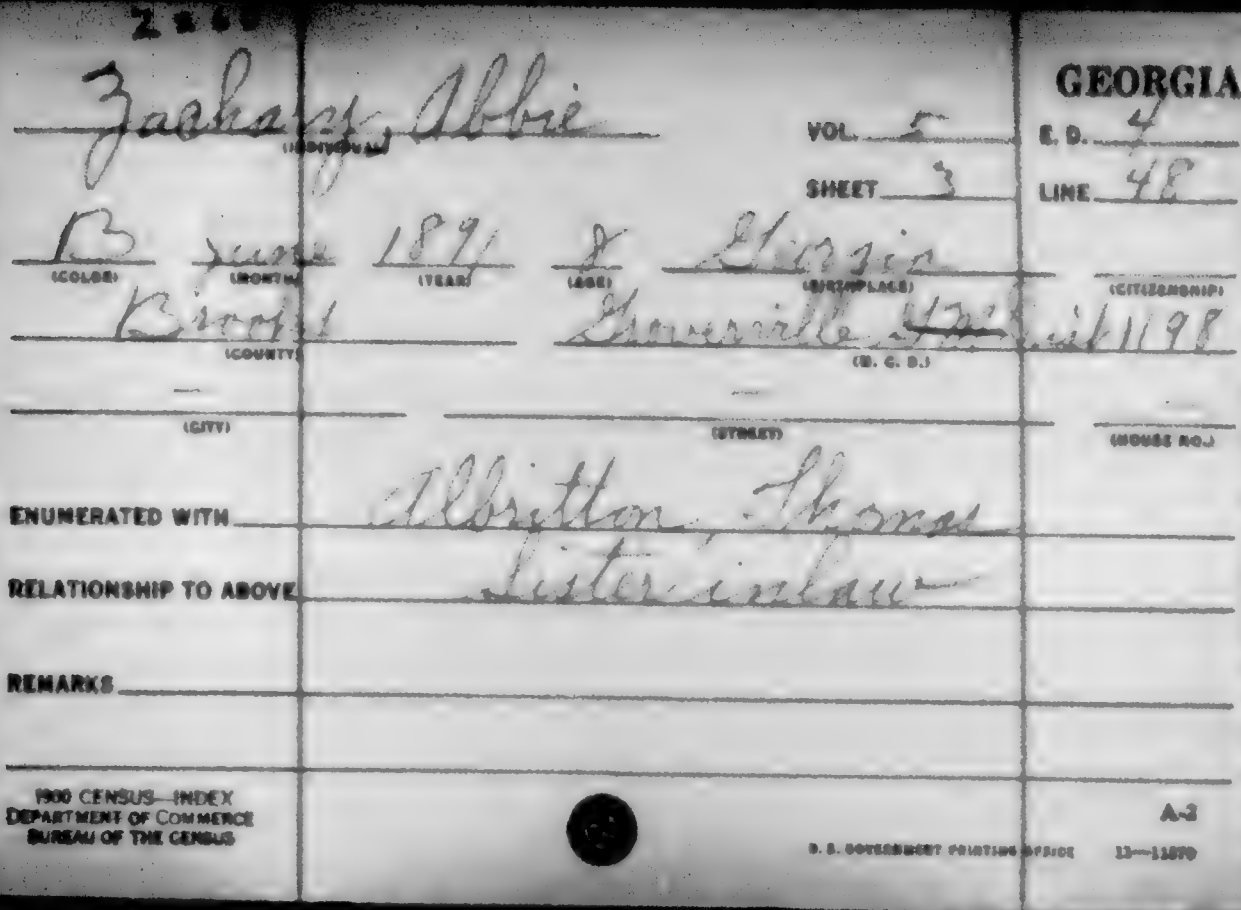 GEORGIA
Zachary, Abbie
(INDIVIDUAL)
VOL. 5 E. D. 4
SHEET 3 LINE 48
B June 1891 8 Georgia
(COLOR) (MONTH) (YEAR) (AGE) (BIRTHPLACE) (CITIZENSHIP)
Brooks Groverville 1198
(COUNTY) (M. C. D.)
— — —
(CITY) (STREET) (HOUSE NO.)
ENUMERATED WITH Albritton, Thomas
RELATIONSHIP TO ABOVE Sister inlaw
REMARKS
1900 CENSUS—INDEX
DEPARTMENT OF COMMERCE
BUREAU OF THE CENSUS
A-2
U. S. GOVERNMENT PRINTING OFFICE 11—11870